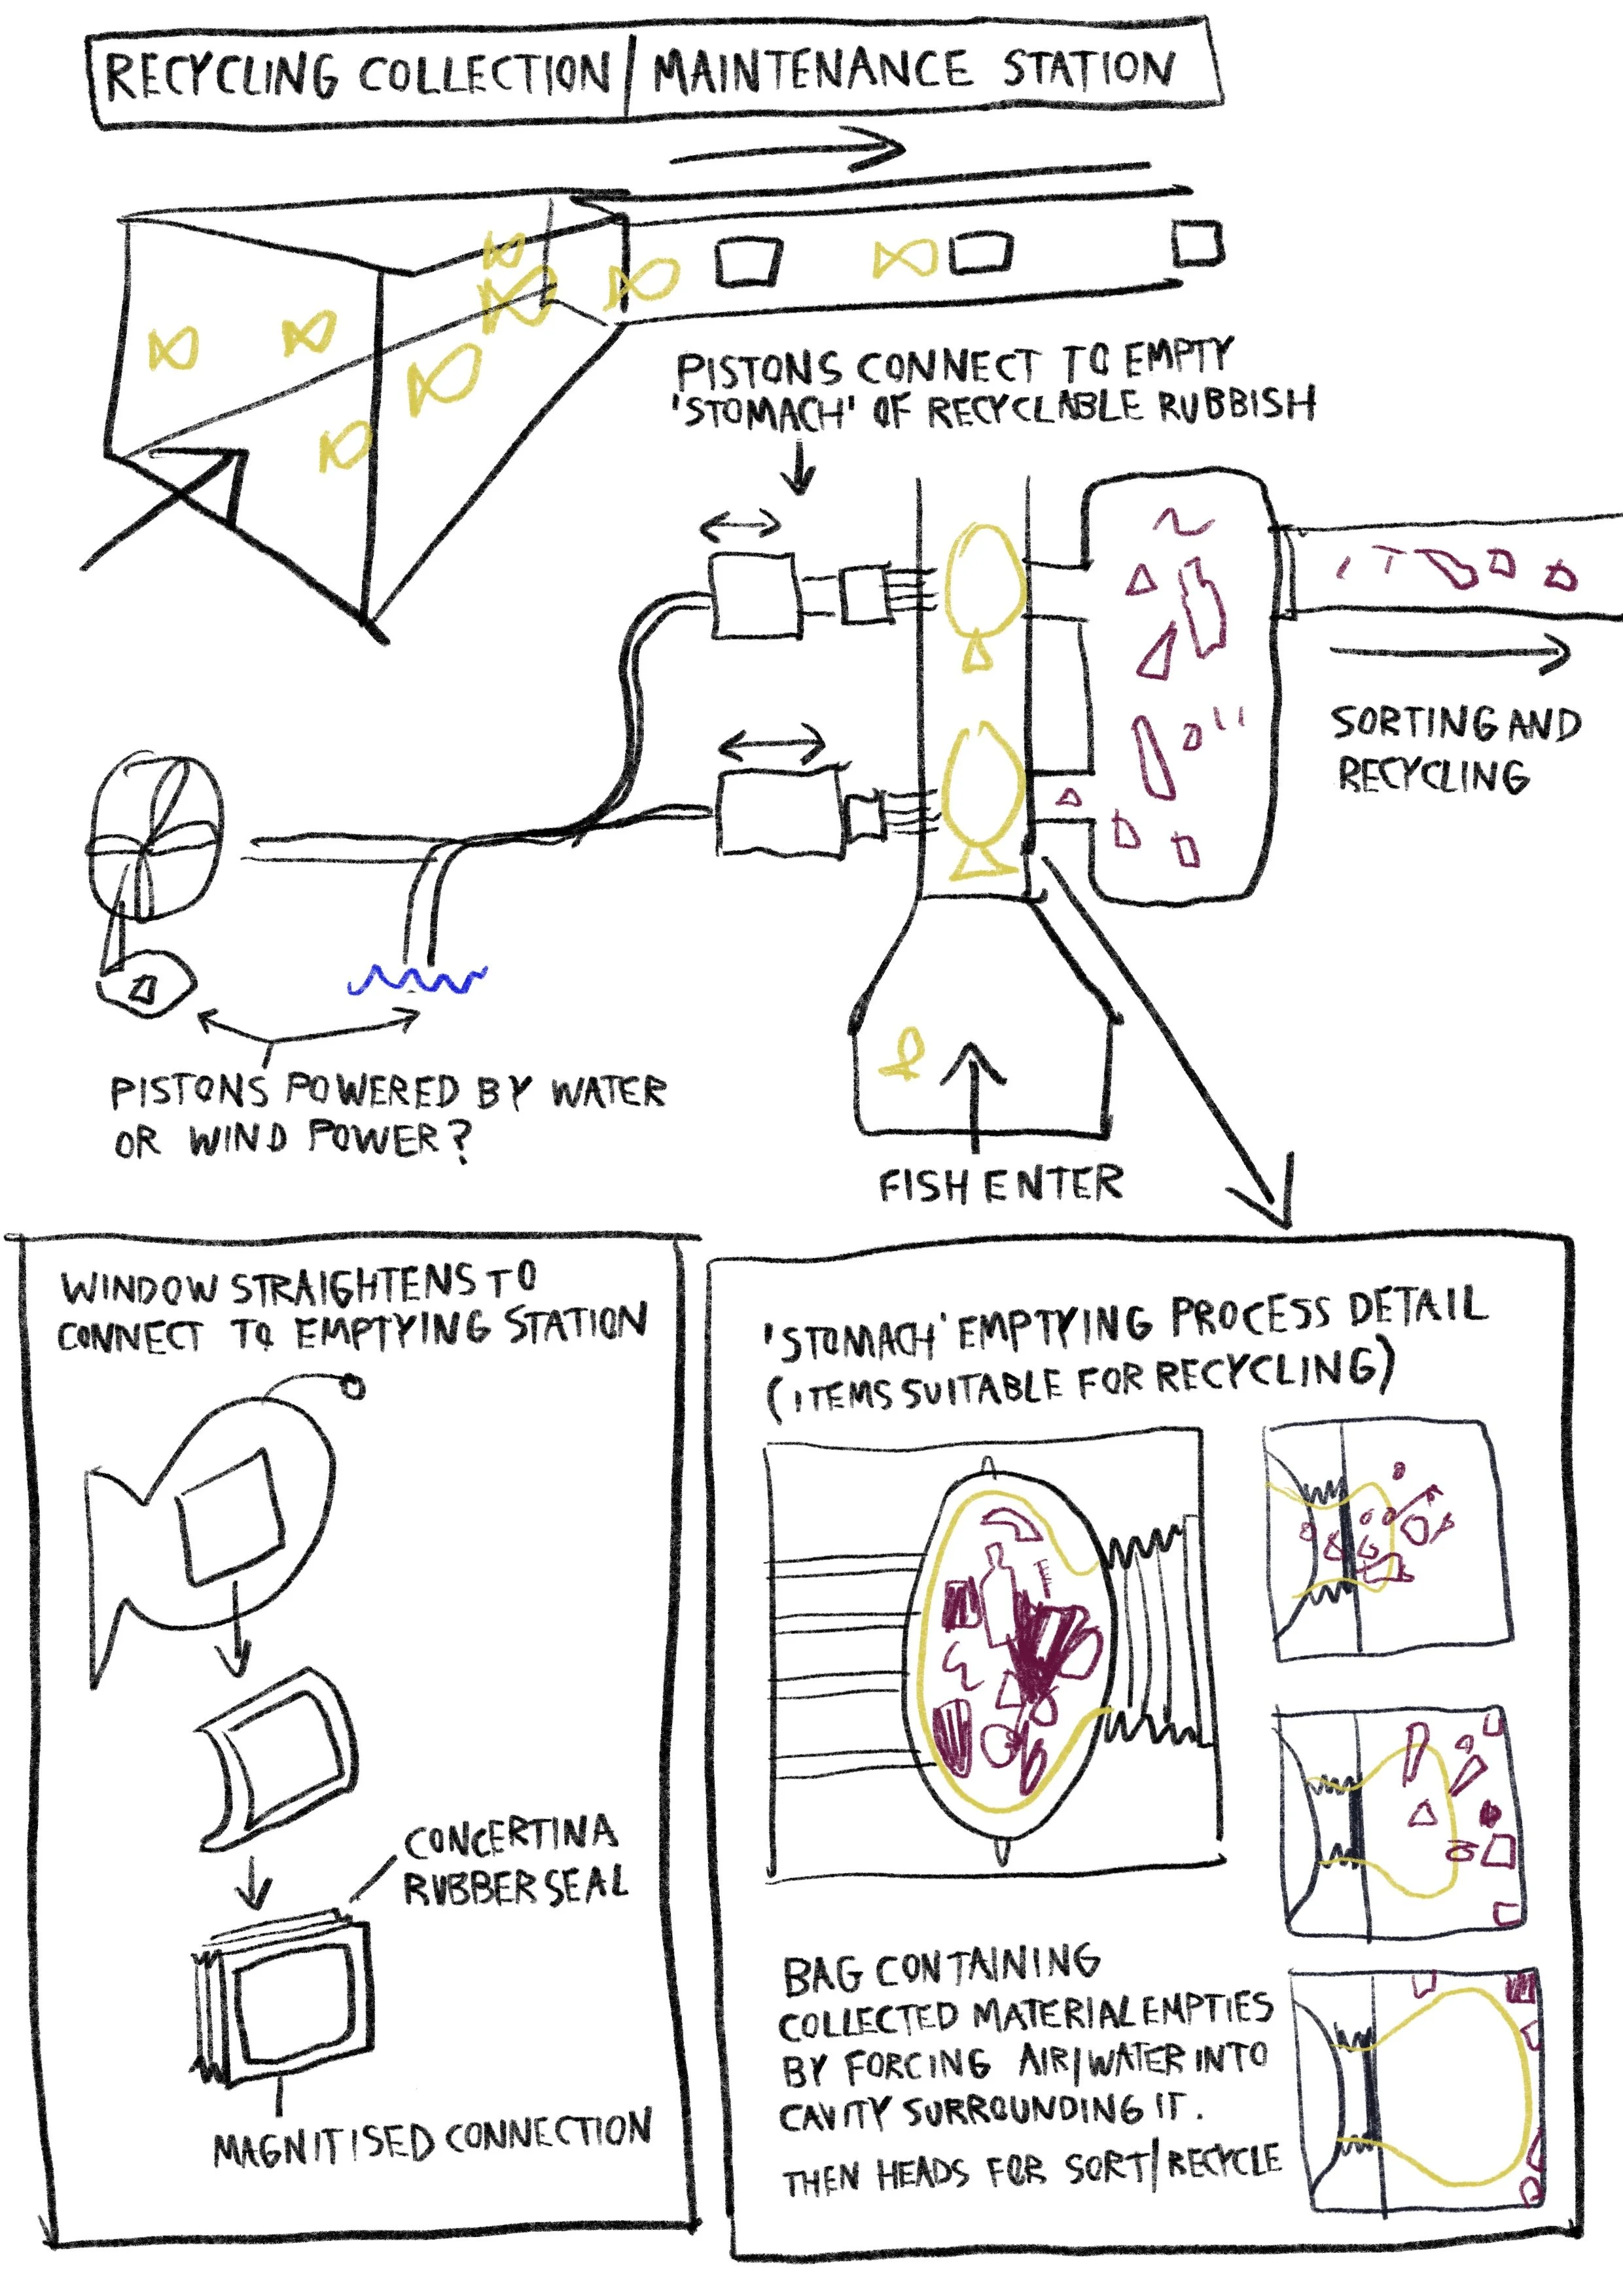 RECYCLING COLLECTION / MAINTENANCE STATION
PISTONS CONNECT TO EMPTY
'STOMACH' OF RECYCLABLE RUBBISH
SORTING AND
RECYCLING
PISTONS POWERED BY WATER
OR WIND POWER?
FISH ENTER
WINDOW STRAIGHTENS TO
CONNECT TO EMPTYING STATION
CONCERTINA
RUBBER SEAL
MAGNITISED CONNECTION
'STOMACH' EMPTYING PROCESS DETAIL
(ITEMS SUITABLE FOR RECYCLING)
BAG CONTAINING
COLLECTED MATERIAL EMPTIES
BY FORCING AIR/WATER INTO
CAVITY SURROUNDING IT.
THEN HEADS FOR SORT/RECYCLE